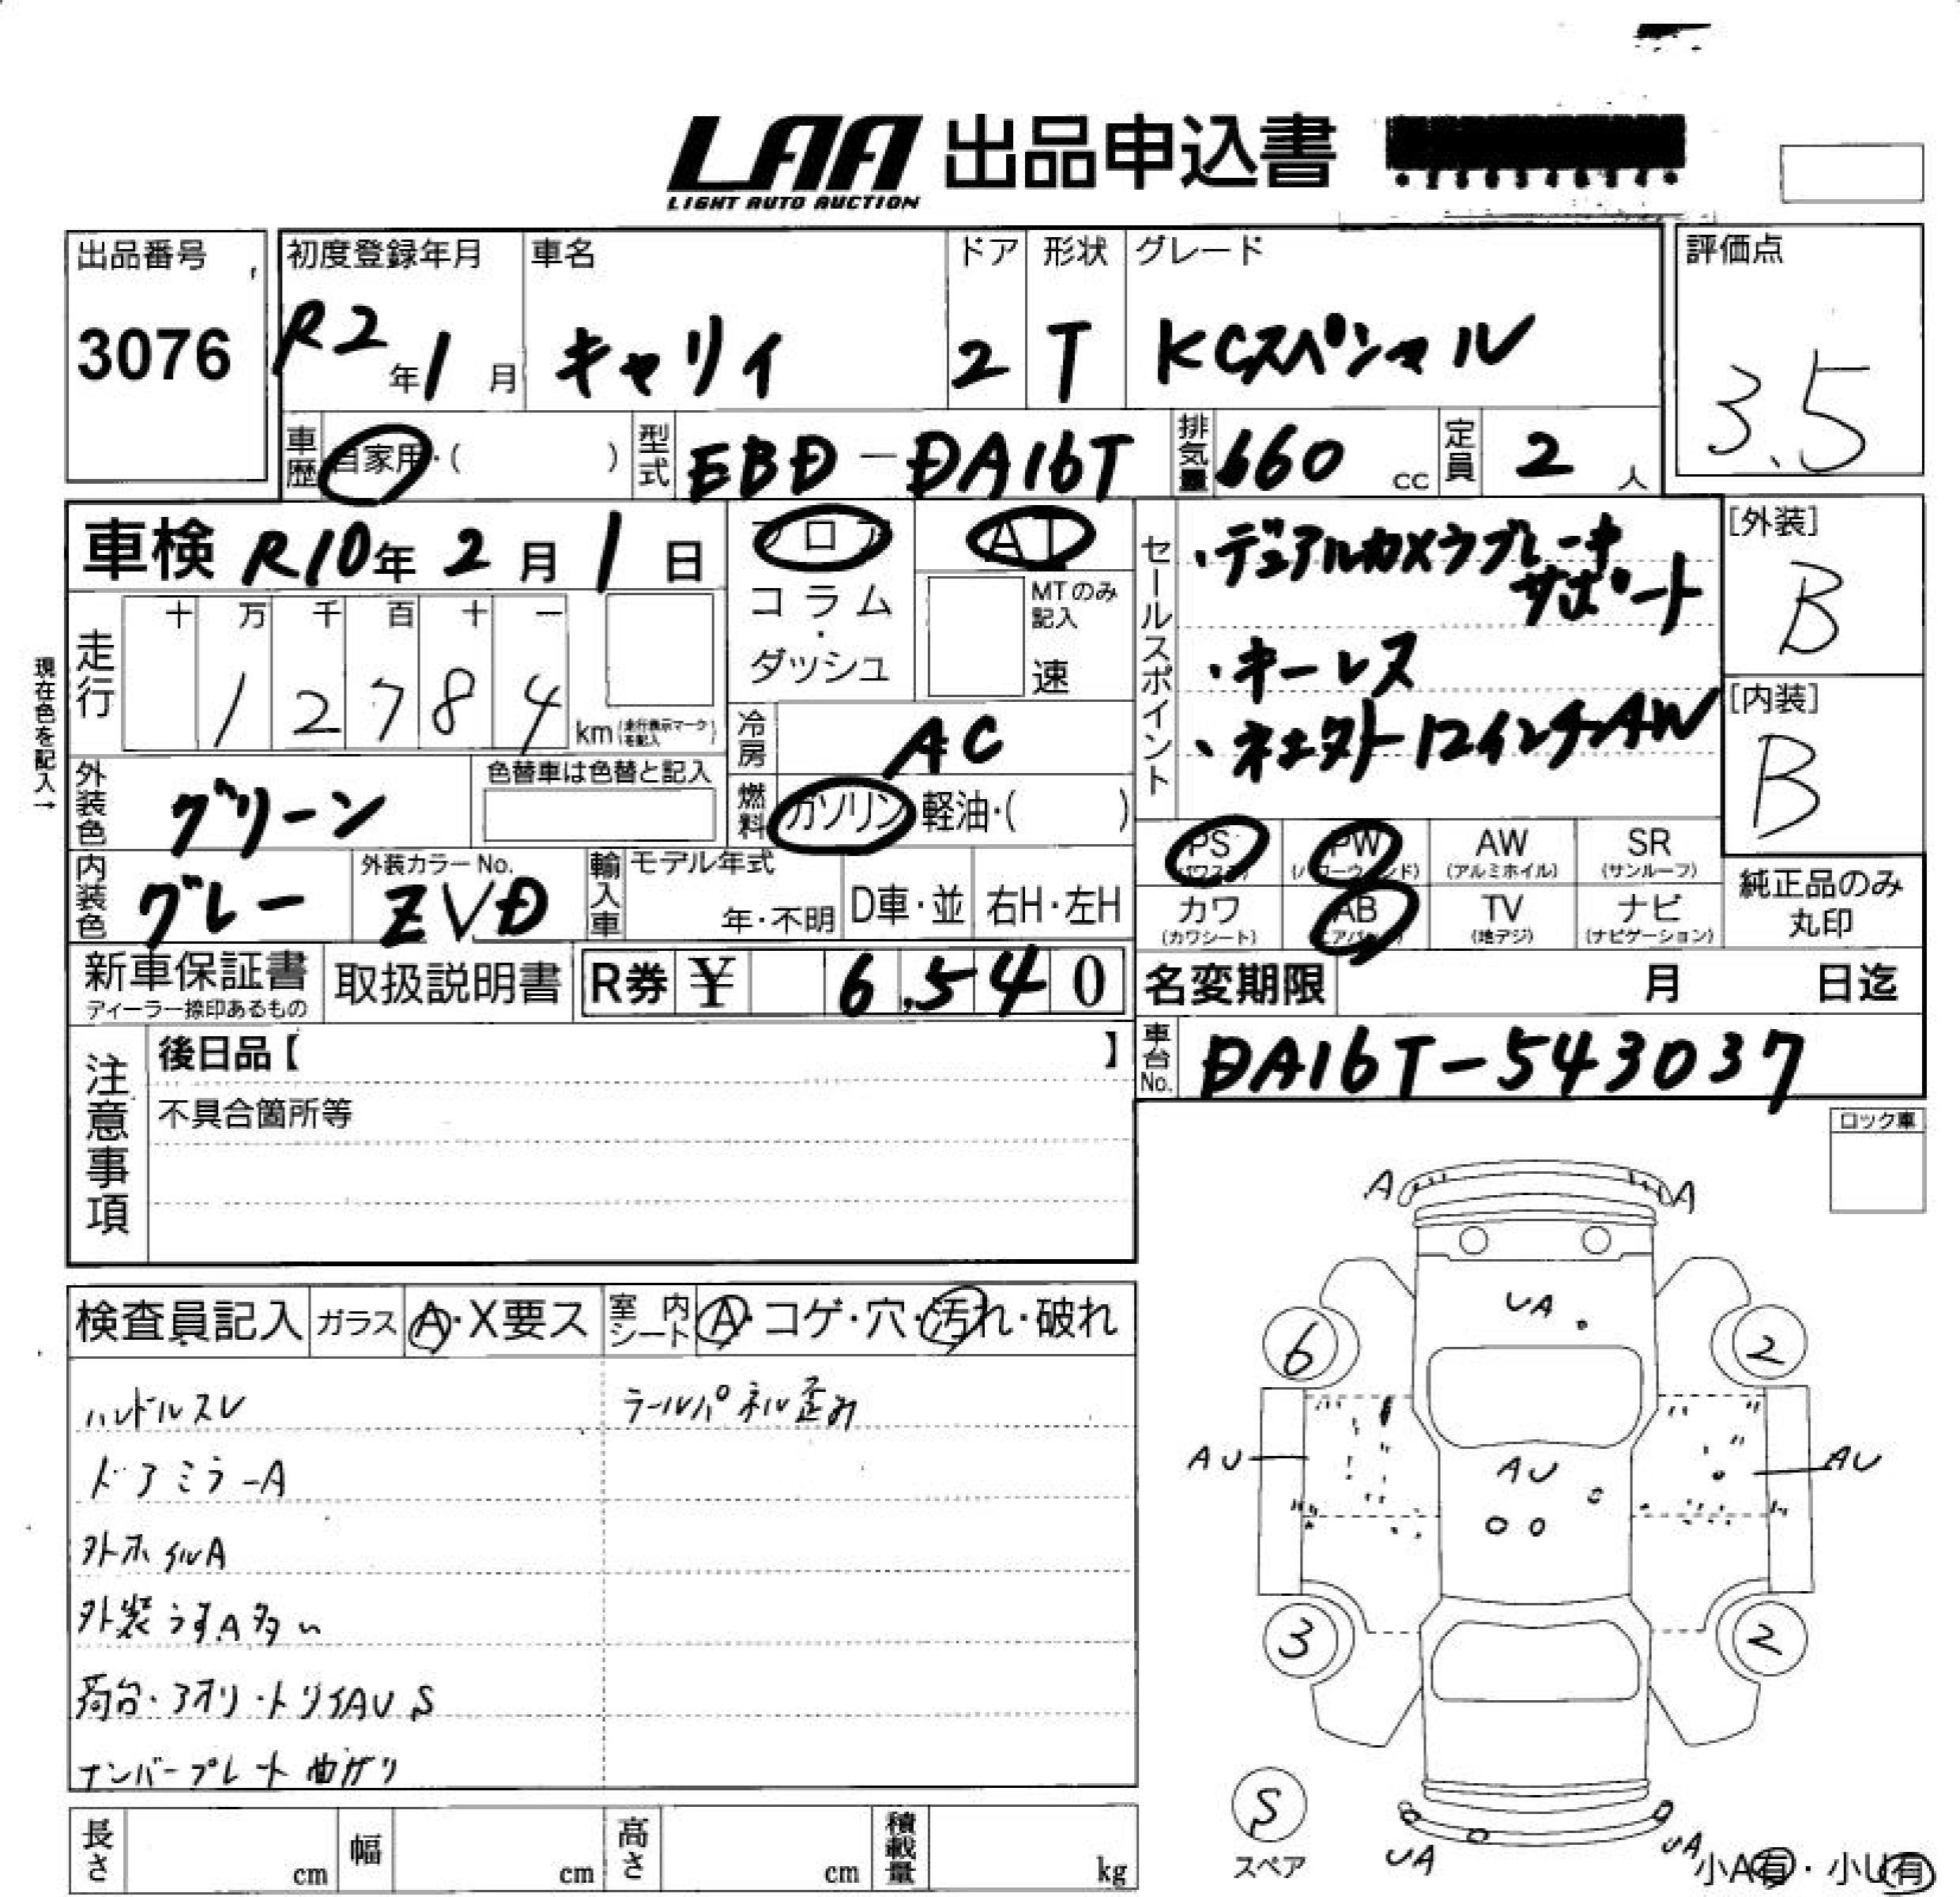 LAA 出品申込書
LIGHT AUTO AUCTION
出品番号
3076
初度登録年月
R2年1月
車名
キャリイ
ドア
2
形状
T
グレード
KCスペシャル
評価点
3.5
車歴
自家用・( )
型式
EBD-DA16T
排気量
660 cc
定員
2 人
車検 R10年 2月 1日
フロア
コラム
・
ダッシュ
AT
MTのみ
記入
速
セールスポイント
・デュアルカメラブレーキ
サポート
・キーレス
・ネクスト12インチAW
[外装]
B
[内装]
B
現在色を記入→
走行
十 万 千 百 十 一
1 2 7 8 4
km (走行表示マークを記入)
冷房
AC
燃料
ガソリン・軽油・( )
外装色
グリーン
色替車は色替と記入
内装色
グレー
外装カラーNo.
ZVD
輸入車
モデル年式
年・不明
D車・並
右H・左H
PS
PW
AW
(アルミホイル)
SR
(サンルーフ)
カワ
(カワシート)
AB
TV
(地デジ)
ナビ
(ナビゲーション)
純正品のみ
丸印
新車保証書
ディーラー捺印あるもの
取扱説明書
R券 ¥ 6,540
名変期限 月 日迄
車台No.
DA16T-543037
注意事項
後日品【 】
不具合箇所等
ロック車
検査員記入
ガラス
A・X要ス
室内シート
A・コゲ・穴・汚れ・破れ
ハンドルスレ
ラールパネル歪み
ドアミラーA
外ホイルA
外装うすA多い
荷台・アオリ・トリイAUS
ナンバープレート曲がり
A
A
UA
6
2
AU
AU
AU
3
2
S
スペア
UA
UA
小A有・小U有
長さ
cm
幅
cm
高さ
cm
積載量
kg